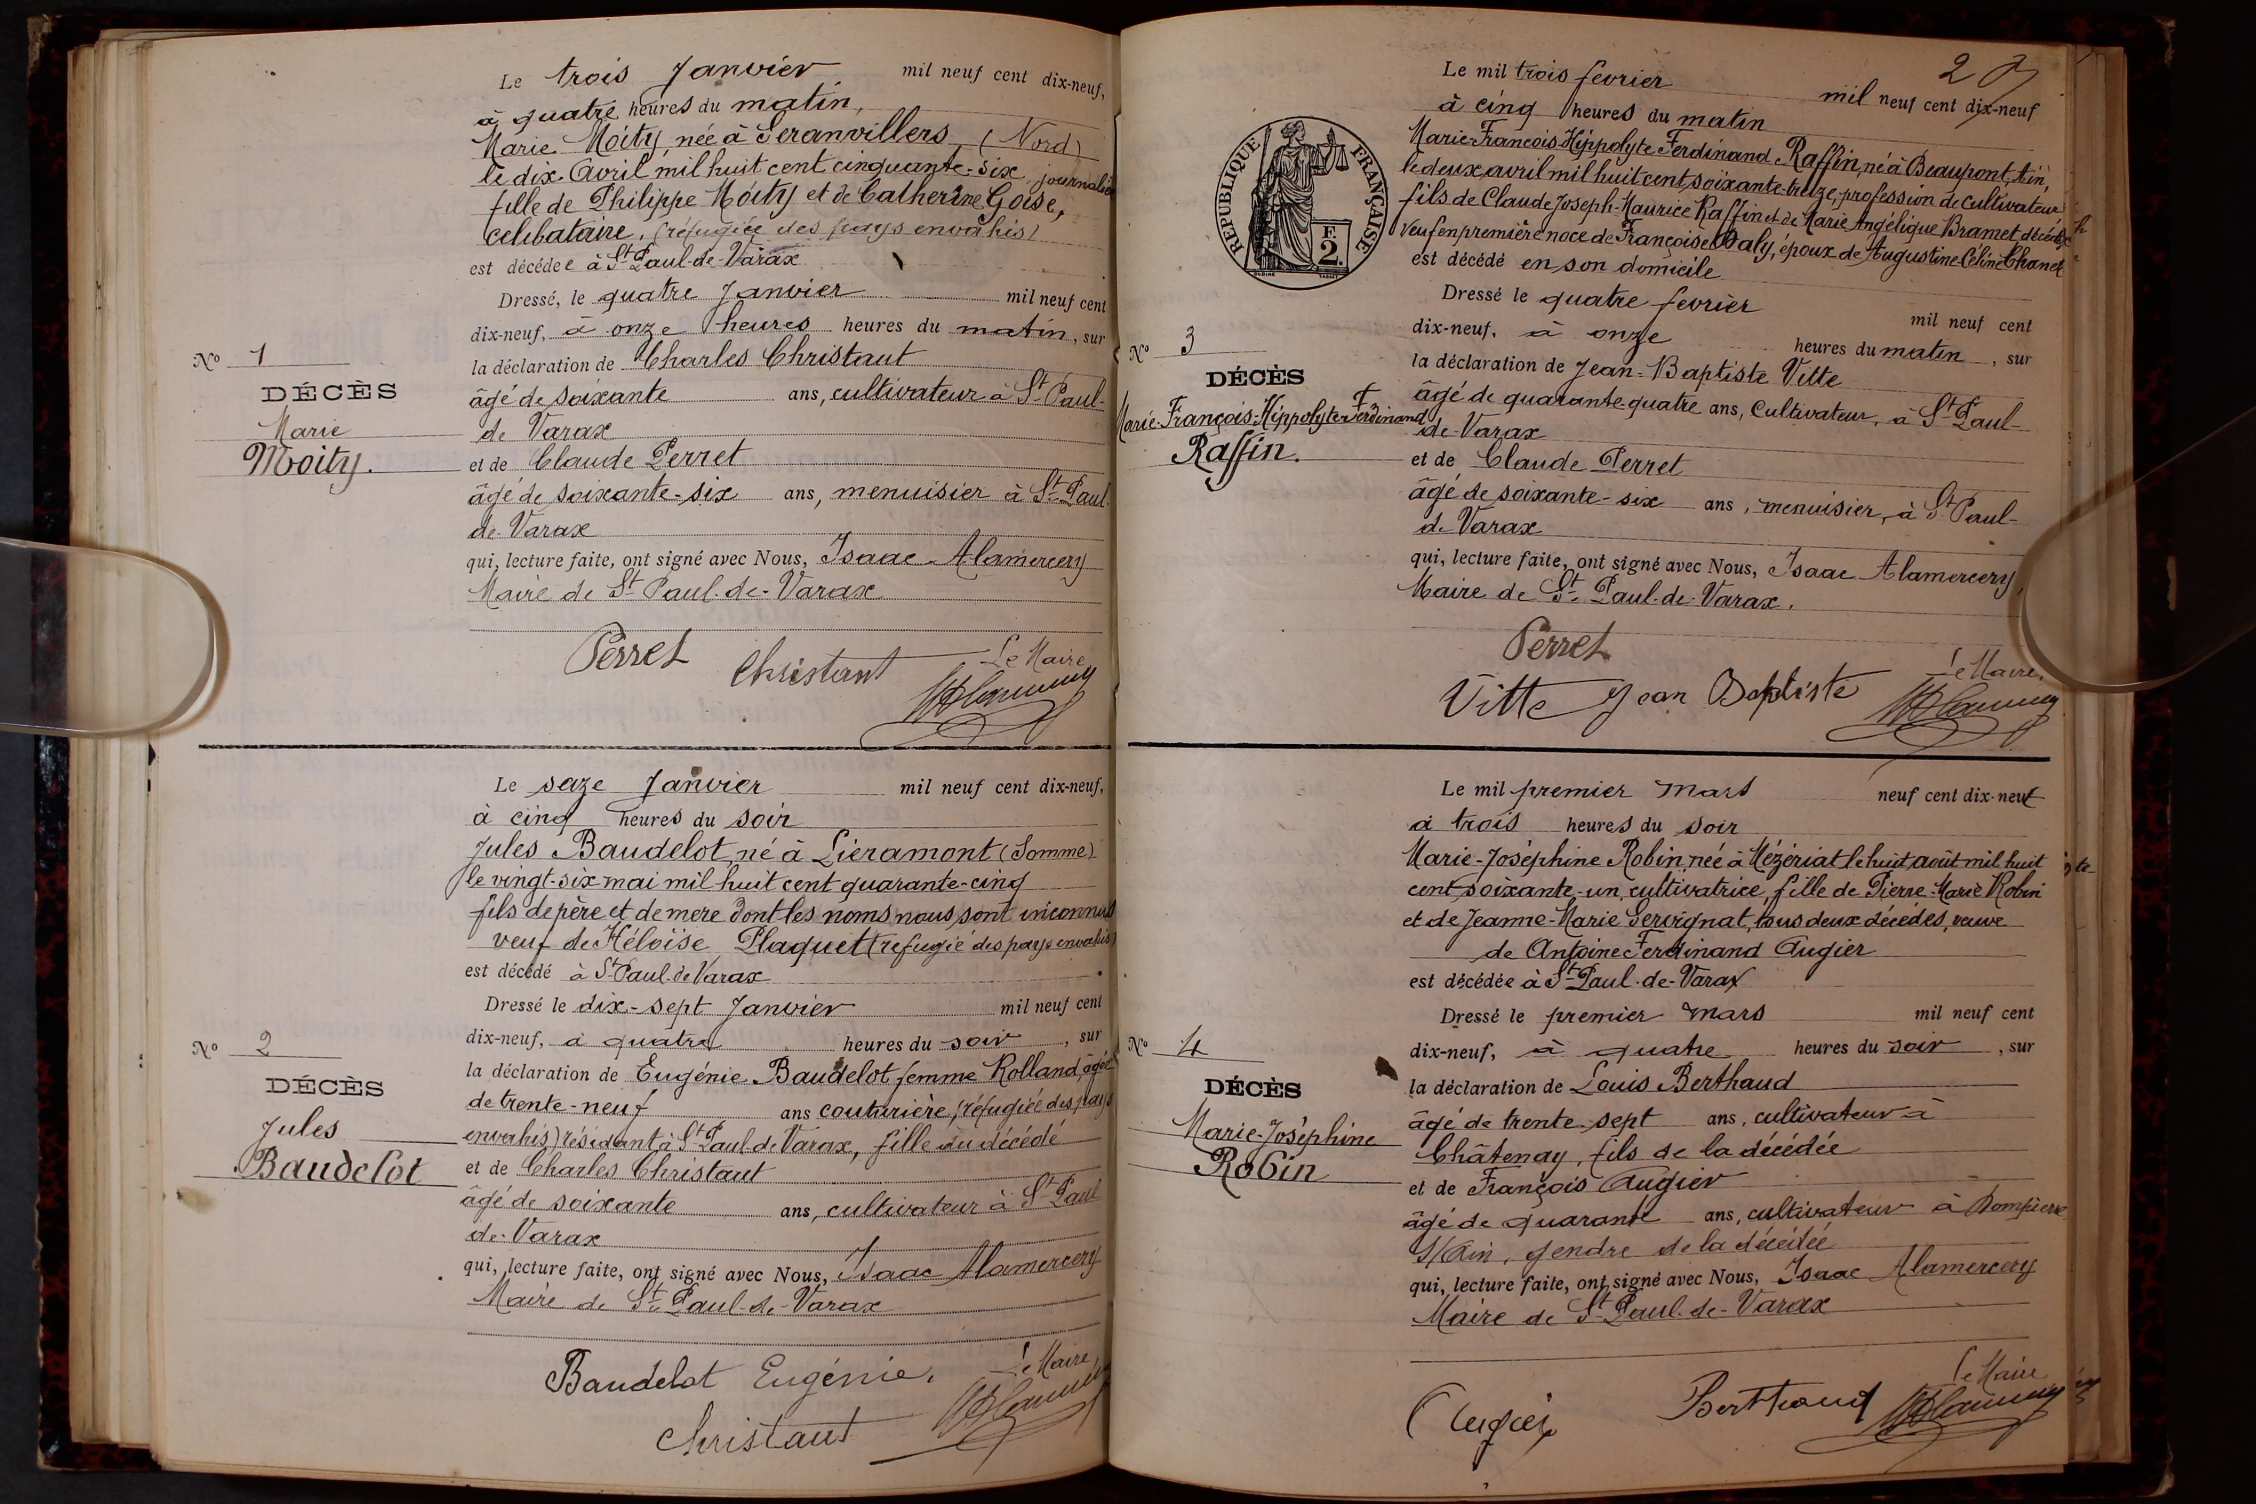 Le trois Janvier mil neuf cent dix-neuf,
à quatre heures du matin,
Marie Moity, née à Seranvillers (Nord)
le dix Avril mil huit cent cinquante-six journalière
fille de Philippe Moity et de Catherine Goise,
célibataire, (réfugiée des pays envahis)
est décédée à St Paul-de-Varax
Dressé, le quatre Janvier mil neuf cent
dix-neuf, à onze heures heures du matin, sur
la déclaration de Charles Christaut
âgé de soixante ans, cultivateur à St Paul-
de Varax
et de Claude Perret
âgé de soixante-six ans, menuisier à St Paul-
de Varax
qui, lecture faite, ont signé avec Nous, Isaac Alamercery
Maire de St Paul-de-Varax
Perret Christaut Le Maire
No 1
DÉCÈS
Marie
Moity.
Le seize Janvier mil neuf cent dix-neuf,
à cinq heures du soir
Jules Baudelot, né à Liéramont (Somme)
le vingt-six mai mil huit cent quarante-cinq
fils de père et de mère dont les noms nous sont inconnus
veuf de Héloïse Plaquet (refugié des pays envahis)
est décédé à St Paul-de-Varax
Dressé le dix-sept Janvier mil neuf cent
dix-neuf, à quatre heures du soir, sur
la déclaration de Eugénie Baudelot femme Rolland, âgée
de trente-neuf ans couturière, (réfugiée des pays
envahis) résidant à St Paul-de-Varax, fille du décédé
et de Charles Christaut
âgé de soixante ans, cultivateur à St Paul
de-Varax
qui, lecture faite, ont signé avec Nous, Isaac Alamercery
Maire de St Paul-de-Varax
Le Maire
Baudelot Eugénie.
Christaut
No 2
DÉCÈS
Jules
Baudelot
2
Le mil trois fevrier mil neuf cent dix-neuf
à cinq heures du matin
Marie-François-Hippolyte Ferdinand Raffin, né à Beaupont, Ain,
le deux avril mil huit cent soixante-treize, profession de cultivateur
fils de Claude Joseph-Maurice Raffin et de Marie Angélique Bramet, décédés
Veuf en première noce de Françoise Daly, époux de Augustine Céline Chanel
est décédé en son domicile
Dressé le quatre fevrier mil neuf cent
dix-neuf, à onze heures du matin, sur
la déclaration de Jean-Baptiste Vitte
âgé de quarante-quatre ans, Cultivateur, à St Paul-
de-Varax
et de Claude Perret
âgé de soixante-six ans, menuisier, à St Paul-
de Varax
qui, lecture faite, ont signé avec Nous, Isaac Alamercery,
Maire de St Paul-de-Varax.
Perret
Vitte Jean Baptiste Le Maire,
RÉPUBLIQUE FRANÇAISE
F.
2.
No 3
DÉCÈS
Marie-François-Hippolyte Ferdinand
Raffin.
Le mil premier Mars neuf cent dix-neuf
à trois heures du soir
Marie-Joséphine Robin, née à Mézériat le huit août mil huit
cent soixante-un, cultivatrice, fille de Pierre-Marie Robin
et de Jeanne-Marie Servignat, tous deux décédés, veuve
de Antoine Ferdinand Augier
est décédée à St Paul-de-Varax
Dressé le premier Mars mil neuf cent
dix-neuf, à quatre heures du soir, sur
la déclaration de Louis Berthaud
âgé de trente-sept ans, cultivateur à
Châtenay, fils de la décédée
et de François Augier
âgé de quarante ans, cultivateur à Dompierre
s/Ain, gendre de la décédée
qui, lecture faite, ont signé avec Nous, Isaac Alamercery
Maire de St Paul-de-Varax
Le Maire
Augier Berthaud
No 4
DÉCÈS
Marie-Joséphine
Robin